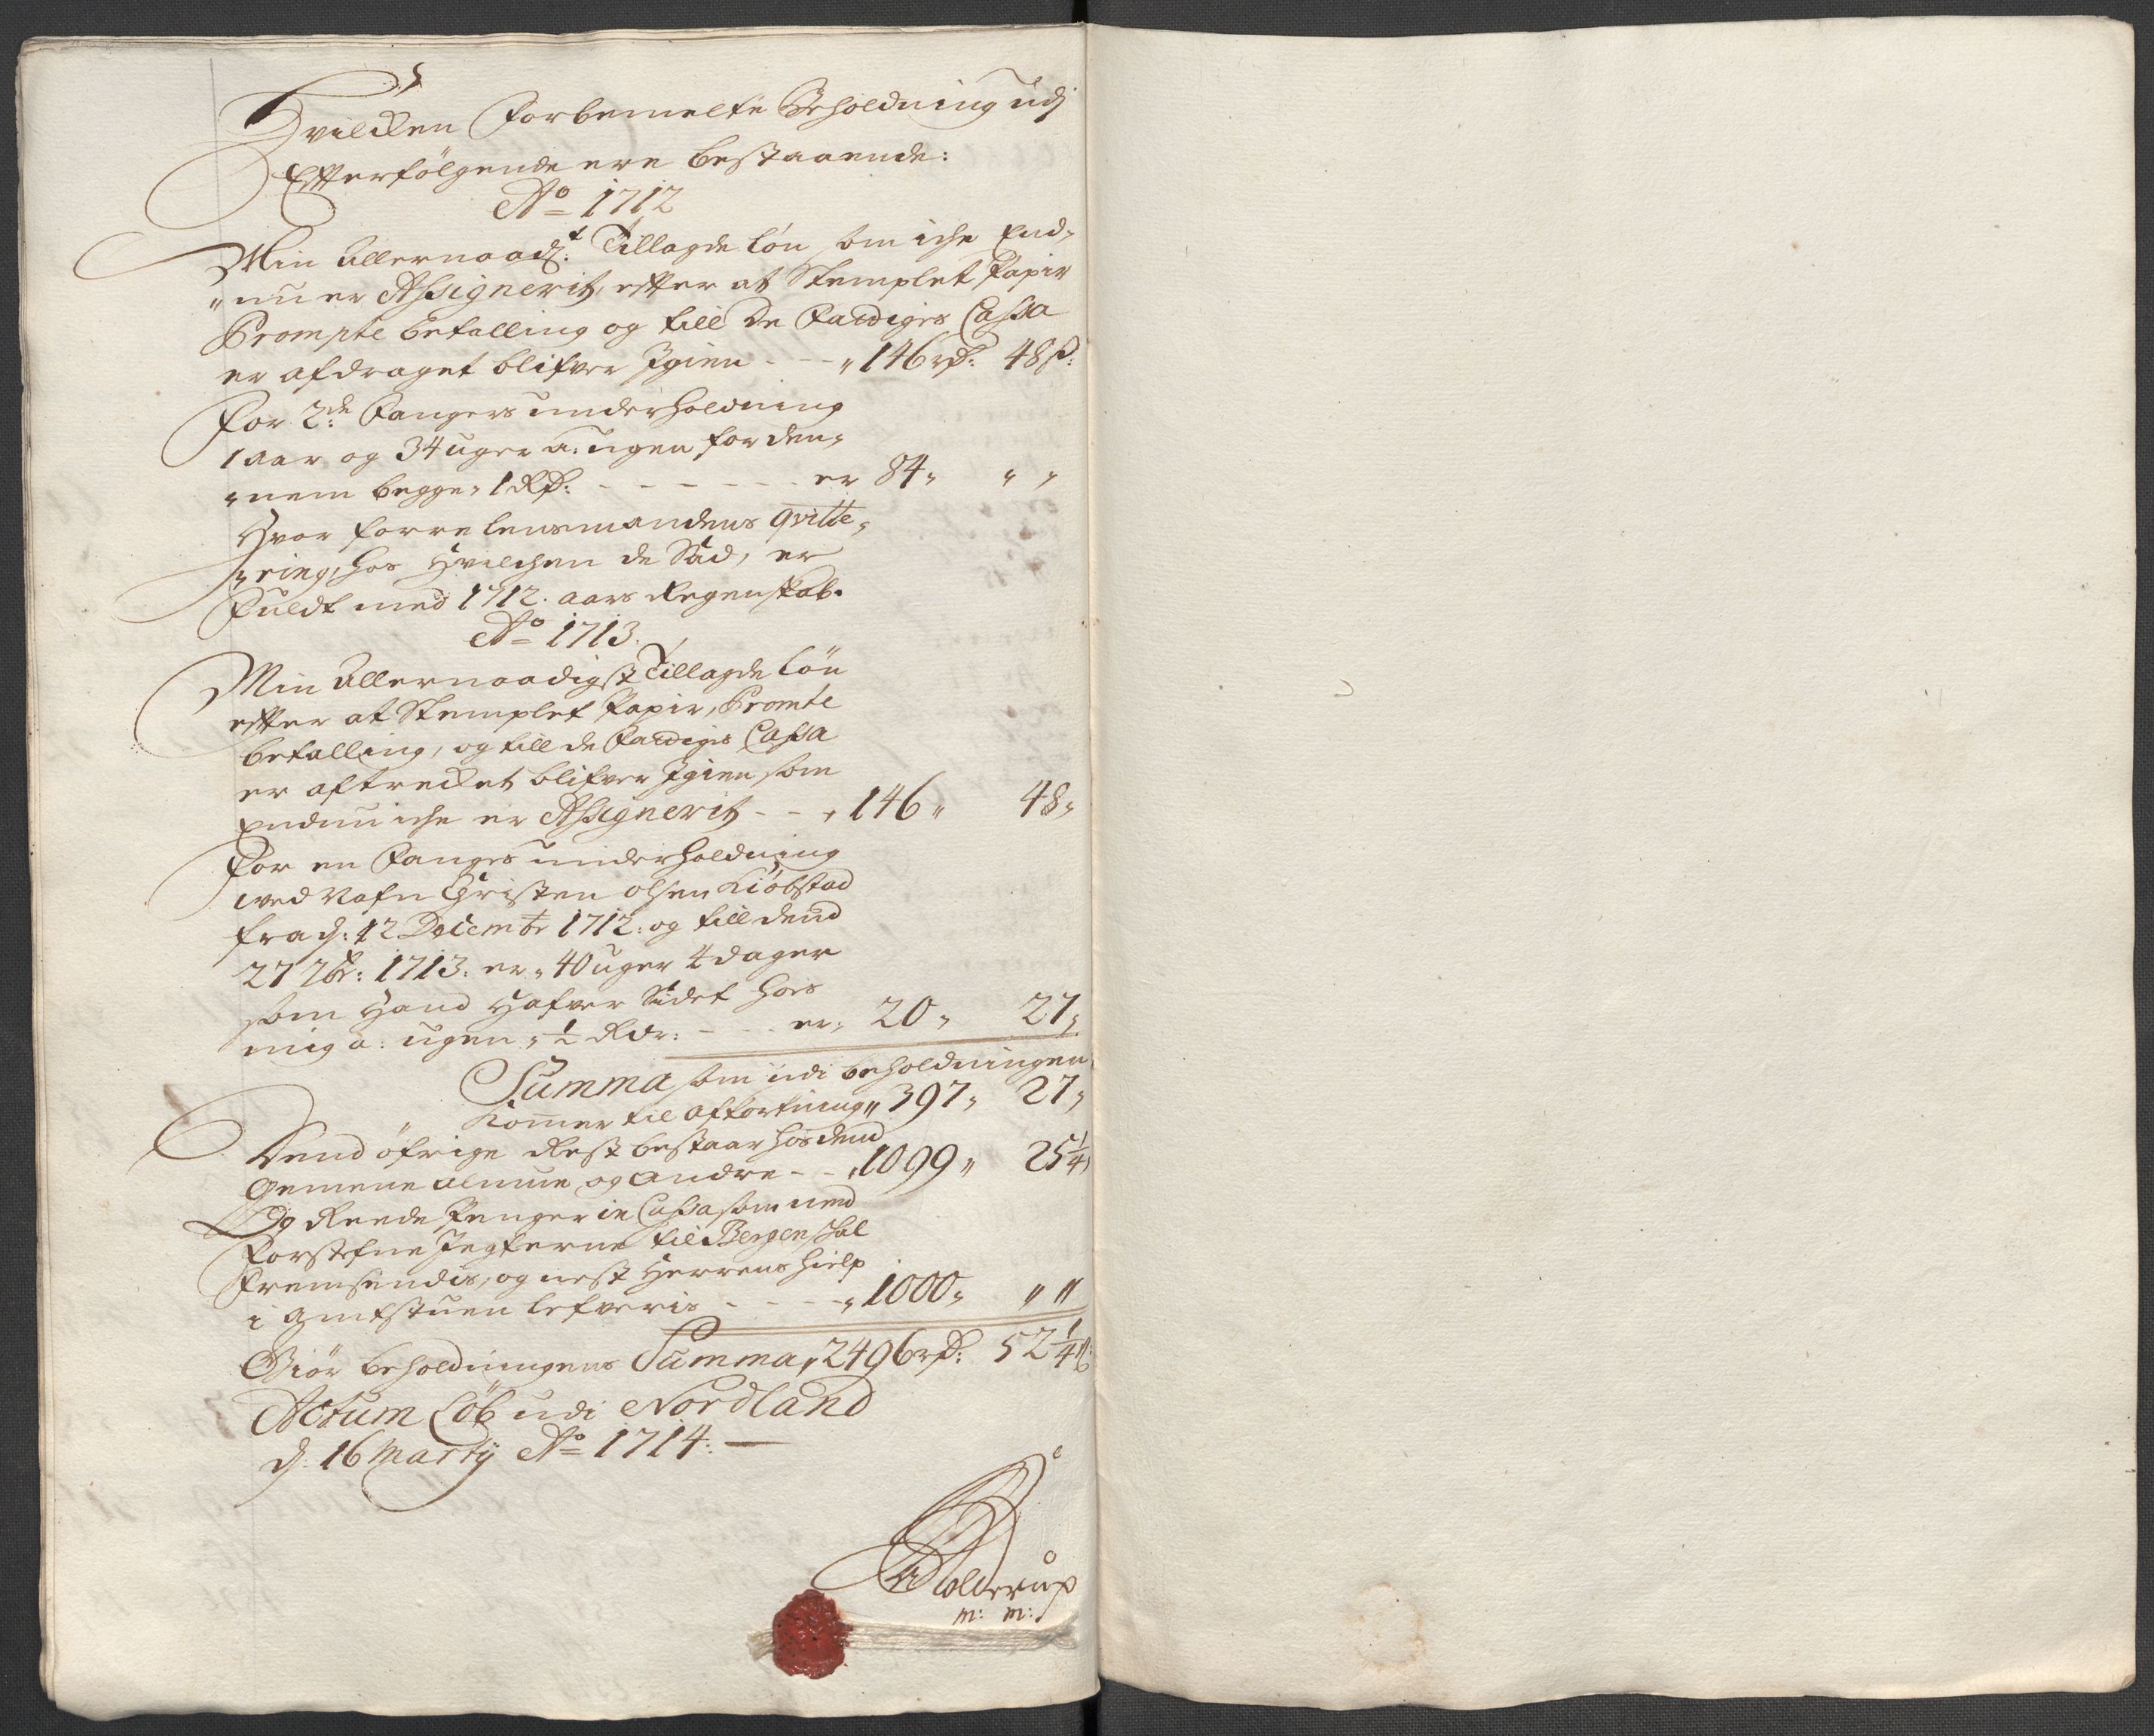 Hvilcken Forbemelte Beholdning udj
Efterfölgende ere bestaaende:
Ao 1712
Min Allernaadst: Tillagde Lön som iche End„
„nu er Assignerit, efter at Stemplet Papir
Prompte betalling og till De Fardiges Cassa
er afdraget blifver Igien - - - „ 146 rd: 48 s:
For 2de Fangers underholdning
1 aar og 34 uger a: ugen for den„
„nem begge„ 1 Rd: - - - - - - er 84„ „ „
Hvor forre lensmandens Qvitte„
„ring, hos Hvilchen de Sad, er
Fuldt med 1712. aars Regenskab.
Ao 1713.
Min Allernaadigst Tillagde Lön
efter at Stemplet Papir, Promte
betalling, og till de Fardigis Cassa
er aftrecket blifver Igien som
Endnu iche er Assignerit - - „ 146„ 48„
For en Fanges underholdning
ved Nafn Christen Olsen Kiöbstad
fra d: 12 Decembr 1712: og till dend
27 7br: 1713: er „ 40 uger 4 dager
som Hand Hafver Sidet hos
mig a: ugen „ ½ Rdr: - - - er„ 20„ 27„
Summa som udi beholdningen
Kommer til afkortning „ 397„ 27„
Dend öfrige Rest bestaar hos dend
gemene almue og andre - - „ 1099„ 25¼„
Og Reede Penger in Cassa som med
Forstefne Jegterne til Bergen skal
fremsendis, og nest Herrens hielp
i Amtstuen lefveris - - - - „ 1000„ „ „
Giör beholdningens Summa „ 2496 rd: 52¼ s:
Actum Löb udi Nordland
d. 16 Martij Ao 1714: —
m: m: